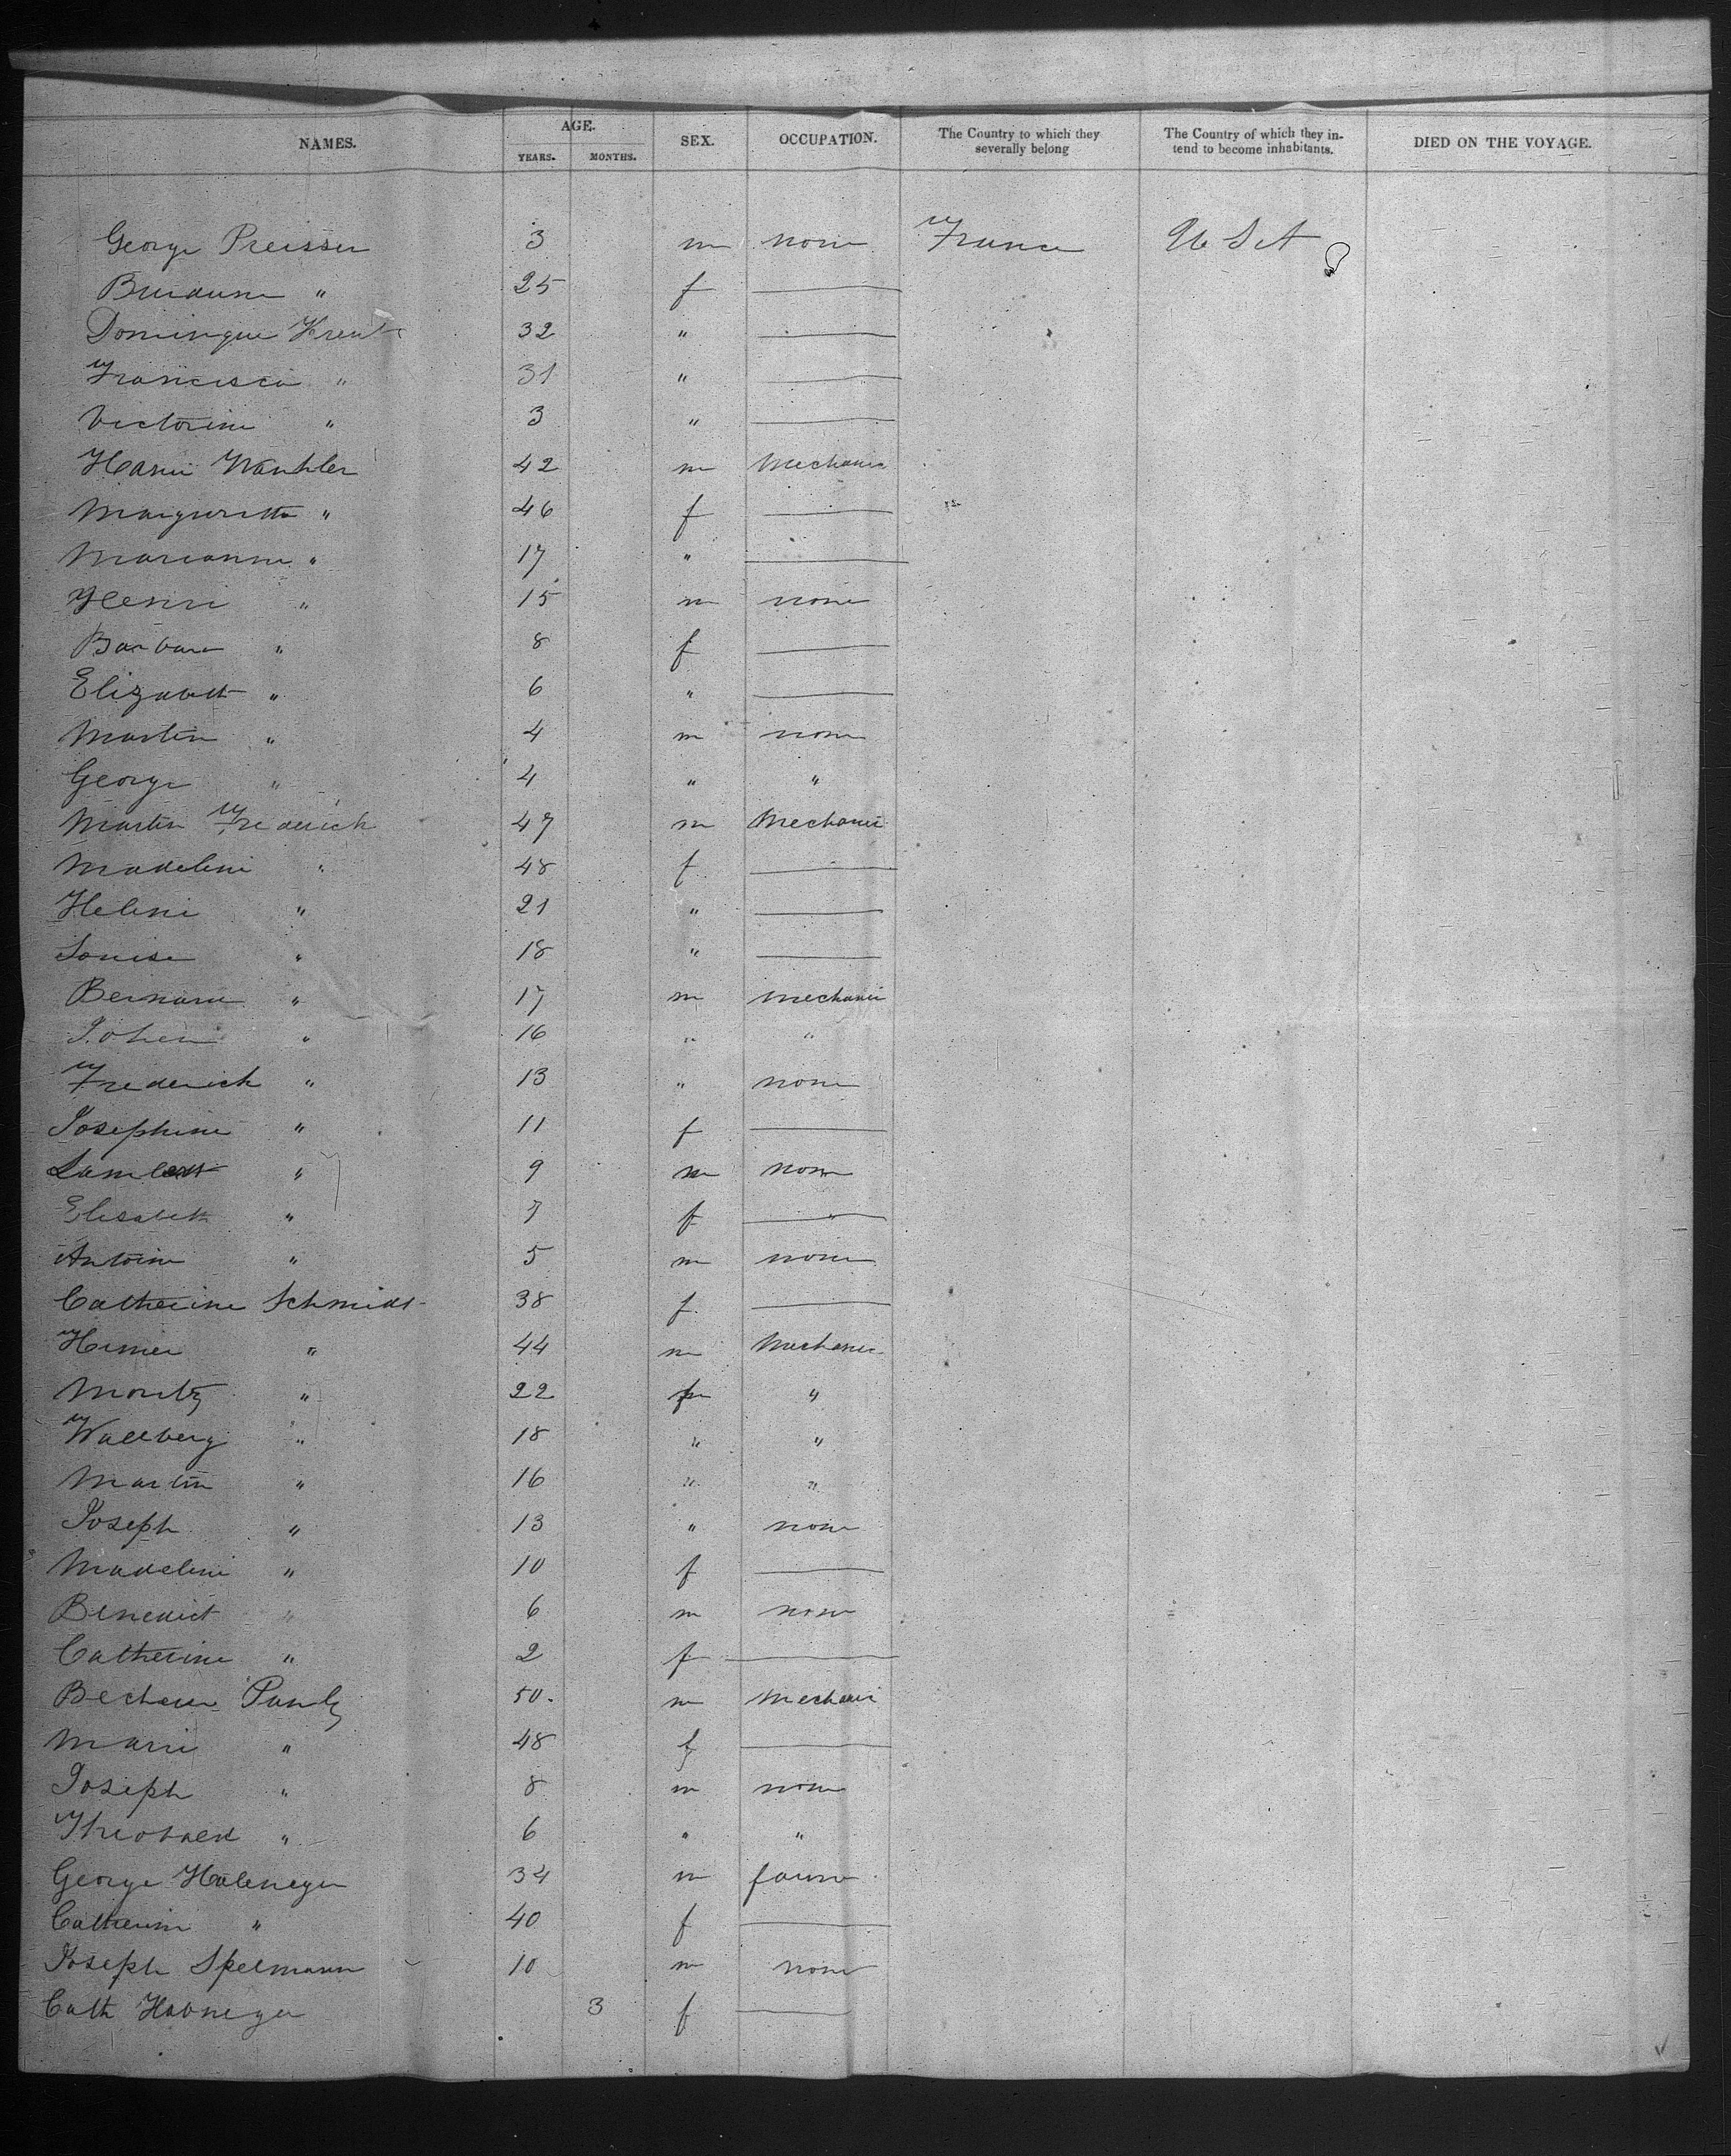 NAMES. AGE. YEARS. MONTHS. SEX. OCCUPATION. The Country to which they severally belong The Country of which they intend to become inhabitants. DIED ON THE VOYAGE.
George Preisser 3 m none France U S A
" 25 f
Dominique 32 "
Francisca " 31 "
Victorine " 3 "
42 m Mechanic
Margaretta " 46 f
Marianne " 17 "
Henri " 15 m none
Barbara " 8 f
Elizabeth " 6 "
Martin " 4 m none
George " 4 " "
Martin Frederick 47 m Mechanic
Madeline " 48 f
Helene " 21 "
Louise " 18 "
Bernard " 17 m mechanic
" 16 " "
Frederick " 13 " none
Josephine " 11 f
Lambert " 9 m none
Elisabeth " 7 f "
Antoine " 5 m none
Catherine Schmidt 38 f
" 44 m Mechanic
Moritz " 22 m "
Wallberg " 18 " "
Martin " 16 " "
Joseph " 13 " none
Madeline " 10 f
Benedict " 6 m none
Catherine " 2 f
50. m Mechanic
Marie " 48 f
Joseph " 8 m none
Theobald " 6 " "
George 34 m
Catherine " 40 f
Joseph Spelmann 10 m none
Cath 3 f